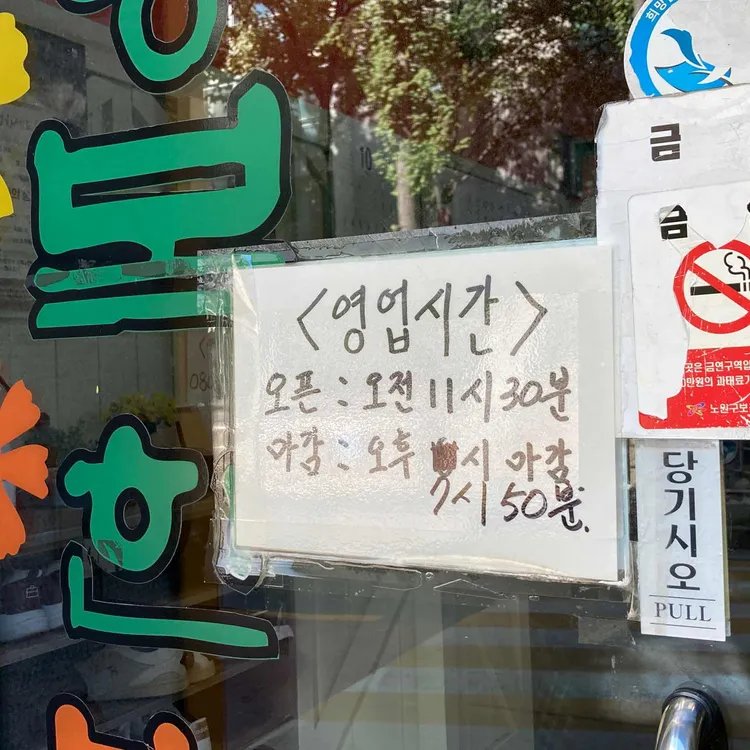 <영업시간>
오픈 : 오전 11시 30분
마감 : 오후 시 마감
7시 50분.
금
금
곳은 금연구역입
만원의 과태료가
노원구보
당기시오
PULL